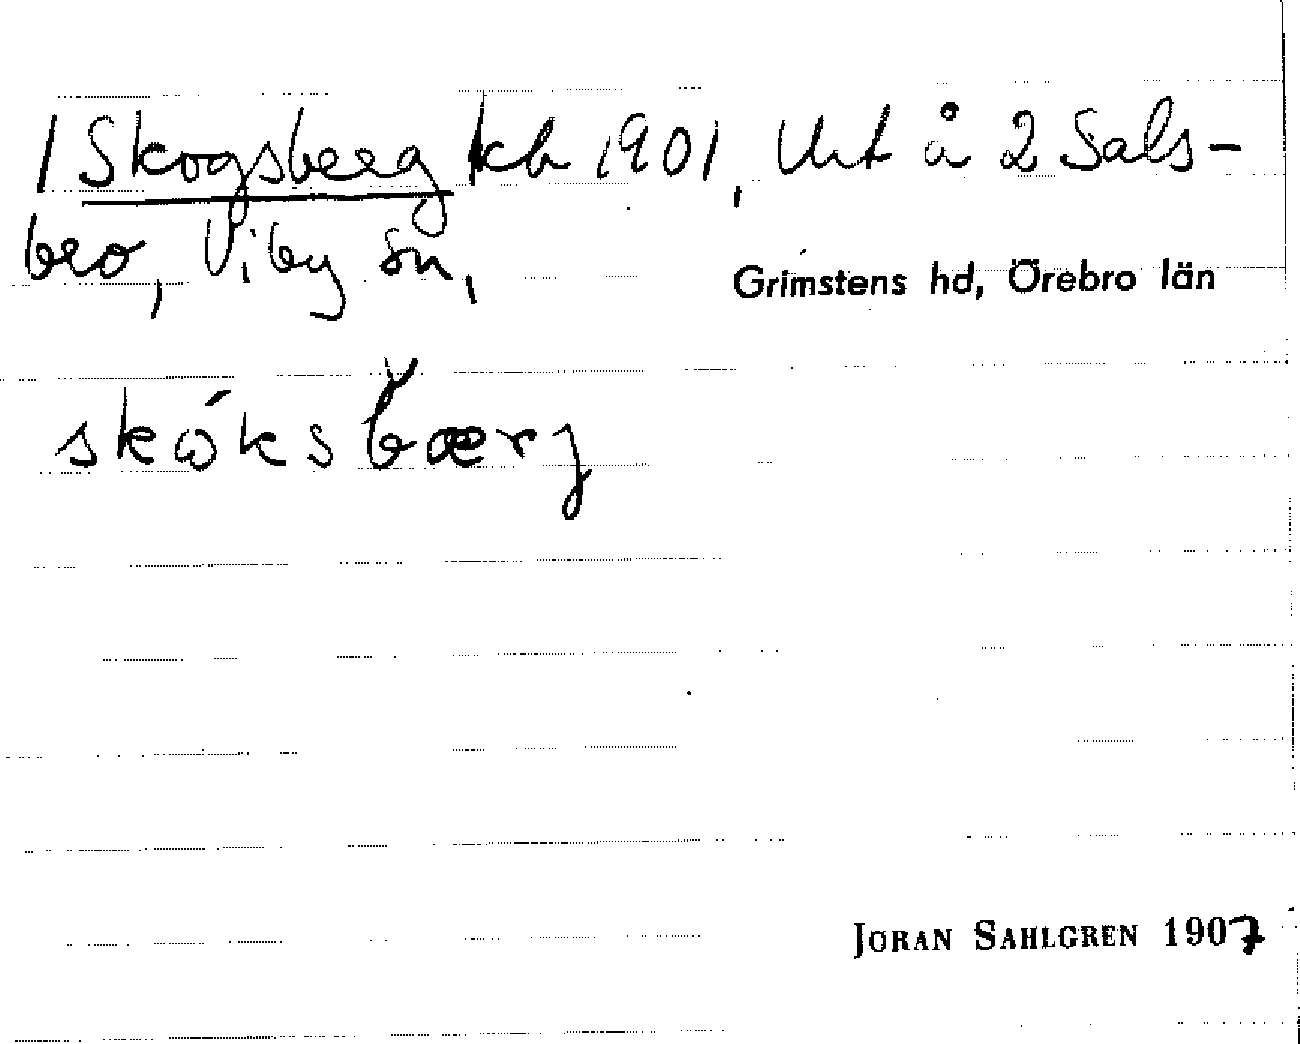 / Skogsberg kb 1901, Uht å 2 Sals-
bro, Viby sn,
Grimstens hd, Örebro län
skώksbærj
JÖRAN SAHLGREN 1907